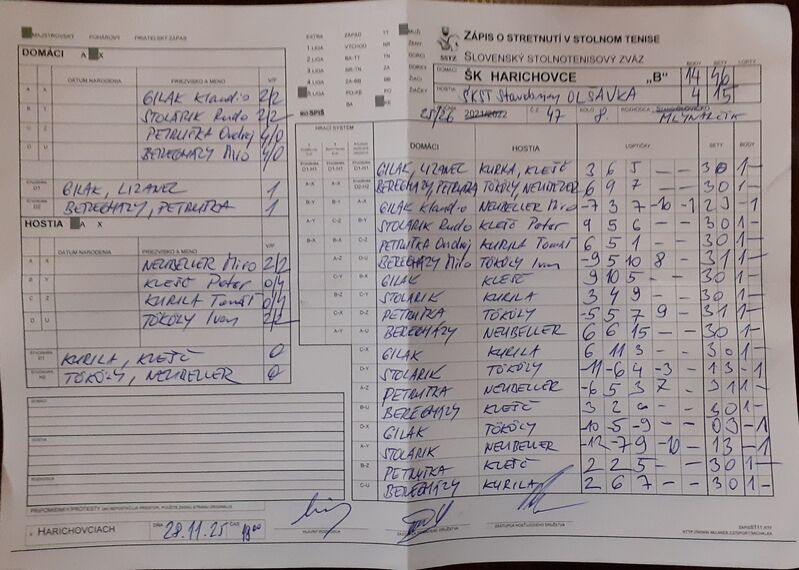 MAJSTROVSKÝ POHÁROVÝ PRIATEĽSKÝ ZÁPAS
DOMÁCI A X
DÁTUM NARODENIA PRIEZVISKO A MENO V/P
A X GILAK Klaudio 2/2
B Y STOLÁRIK Rudo 2/2
C Z PETRUTKA Ondrej 4/0
D U BEREGHÁZY Miro 4/0
D1 GILAK, LIZANEC 1
D2 BEREGHÁZY, PETRUTKA 1
HOSTIA A X
DÁTUM NARODENIA PRIEZVISKO A MENO V/P
A X NEUBELLER Miro 2/2
B Y KLEŠČ Peter 0/4
C Z KURILA Tomáš 0/4
D U TÖKÖLY Ivan 2/2
KURILA, KLEŠČ 0
TÖKÖLY, NEUBELLER 0
DOMÁCI
HOSTIA
ROZHODCA
PRIPOMIENKY/PROTESTY
V HARICHOVCIACH DŇA 28.11.25 ČAS 18:00
EXTRA ZÁPAD TT MUŽI
1 LIGA VÝCHOD NR ŽENY
2 LIGA BA-TT TN DORCI
3 LIGA NR-TN ZA DORKY
4 LIGA ZA-BB BB
5 LIGA PO-KE PO ŽIAČKY
BA KE
RO SPIŠ
HRACÍ SYSTÉM
ZÁPIS O STRETNUTÍ V STOLNOM TENISE
SSTZ SLOVENSKÝ STOLNOTENISOVÝ ZVÄZ
DOMÁCI ŠK HARICHOVCE „B" BODY 14 SETY 46 LOPTY
HOSTIA ŠKST Starodreviny OLŠAVKA 4 15
25/26 2021/2022 Č.Z. 47 KOLO 8. ROZHODCA MLYNARČÍK
DOMÁCI HOSTIA LOPTIČKY SETY BODY
GILAK, LIZANEC KURILA, KLEŠČ 3 6 5 - - 3 0 1 -
BEREGHÁZY, PETRUTKA TÖKÖLY, NEUBELLER 6 9 7 - - 3 0 1 -
GILAK Klaudio NEUBELLER Miro -7 3 7 -10 -1 2 3 - 1
STOLÁRIK Rudo KLEŠČ Peter 9 5 6 - - 3 0 1 -
PETRUTKA Ondrej KURILA Tomáš 6 5 1 - - 3 0 1 -
BEREGHÁZY Miro TÖKÖLY Ivan -9 5 10 8 - 3 1 1 -
GILAK KLEŠČ 9 10 5 - - 3 0 1 -
STOLÁRIK KURILA 3 4 9 - - 3 0 1 -
PETRUTKA TÖKÖLY -5 5 7 9 - 3 1 1 -
BEREGHÁZY NEUBELLER 6 6 15 - - 3 0 1 -
GILAK KURILA 6 11 3 - - 3 0 1 -
STOLÁRIK TÖKÖLY -11 -6 4 -3 - 1 3 - 1
PETRUTKA NEUBELLER -6 5 3 7 - 3 1 1 -
BEREGHÁZY KLEŠČ 3 2 6 - - 3 0 1 -
GILAK TÖKÖLY -10 -5 -9 - - 0 3 - 1
STOLÁRIK NEUBELLER -12 -7 9 -10 - 1 3 - 1
PETRUTKA KLEŠČ 2 2 5 - - 3 0 1 -
BEREGHÁZY KURILA 2 6 7 - - 3 0 1 -
HLAVNÝ ROZHODCA
ZÁSTUPCA DOMÁCEHO DRUŽSTVA
ZÁSTUPCA HOSŤUJÚCEHO DRUŽSTVA